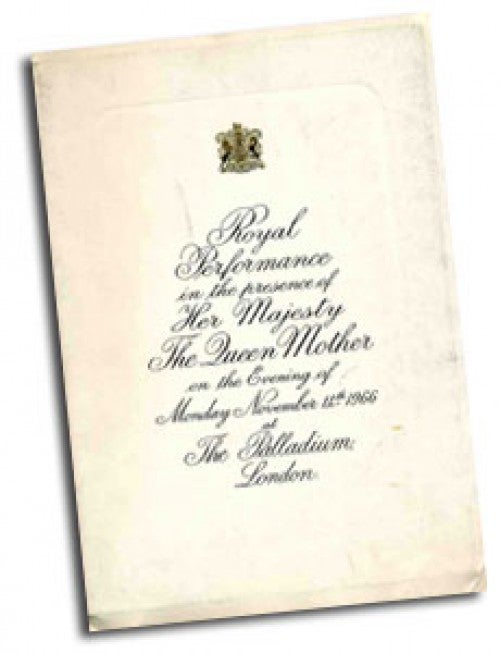 Royal
Performance
in the presence of
Her Majesty
The Queen Mother
on the Evening of
Monday November 14th 1966
at
The Palladium,
London.